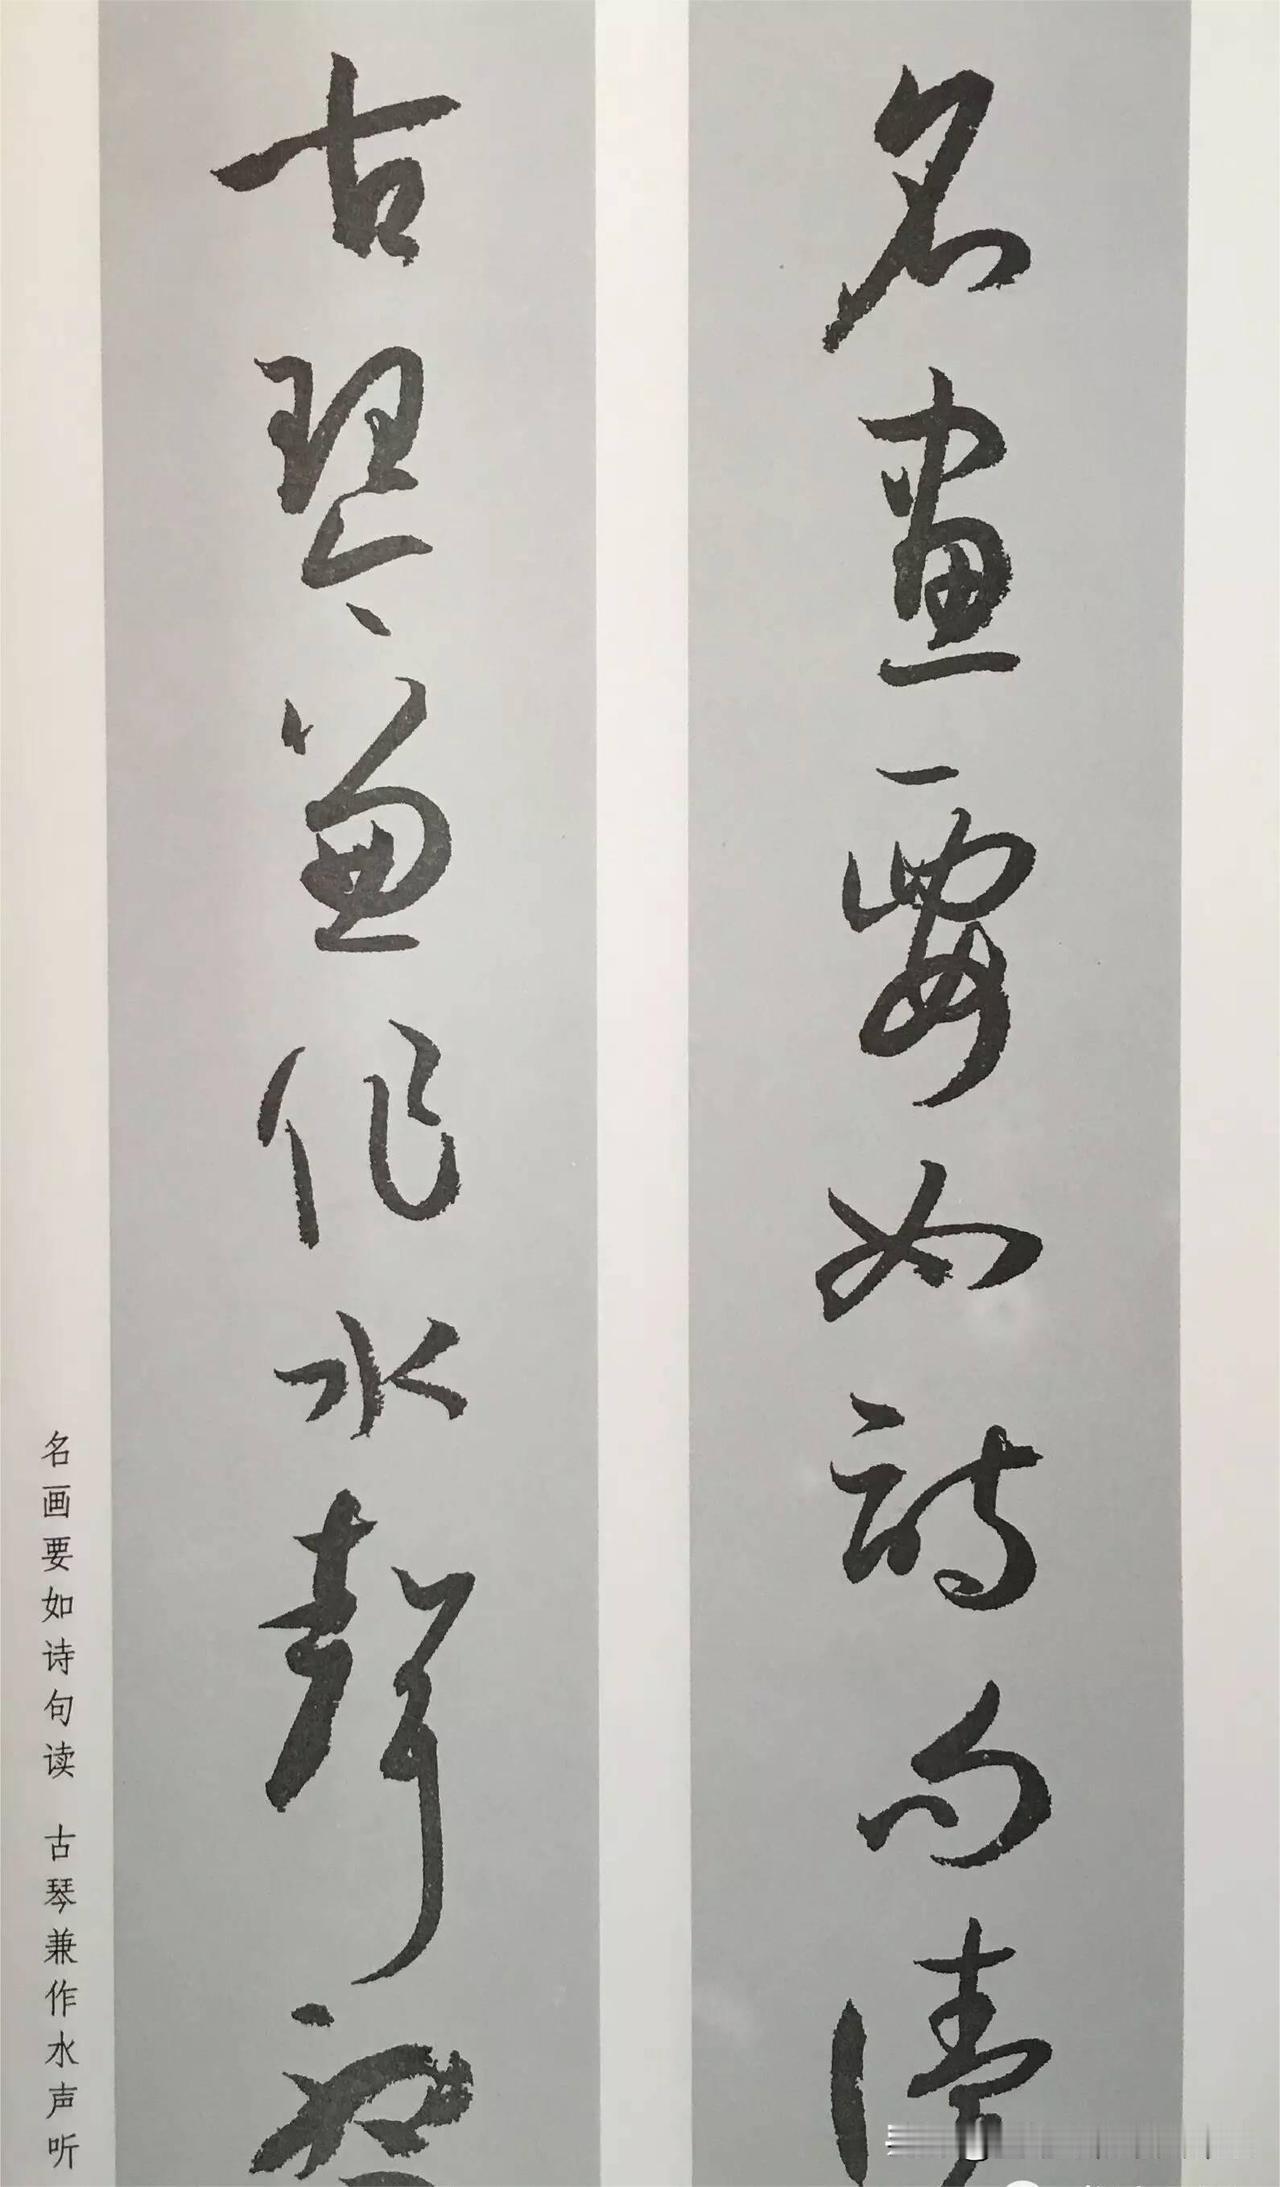 名畫要如詩句讀
古琴兼作水聲聽
名画要如诗句读 古琴兼作水声听